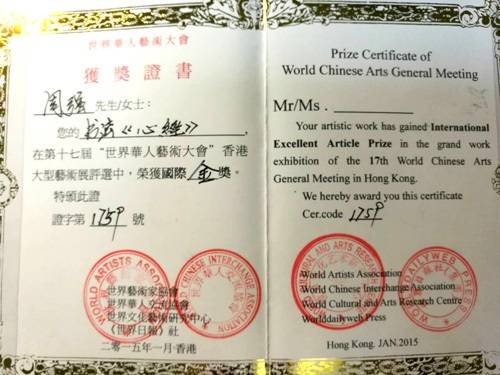 世界華人藝術大會
獲獎證書
周强 先生/女士：
您的 书法《心經》，
在第十七届“世界華人藝術大會”香港
大型藝術展評選中，榮獲國際 金 獎。
特頒此證
證字第 1759 號
世界藝術家協會
世界華人交流協會
世界文化藝術研究中心
《世界日報》社
二〇一五年一月·香港
Prize Certificate of
World Chinese Arts General Meeting
Mr/Ms .
Your artistic work has gained International
Excellent Article Prize in the grand work
exhibition of the 17th World Chinese Arts
General Meeting in Hong Kong.
We hereby award you this certificate
Cer.code 1759
World Artists Association
World Chinese Interchange Association
World Cultural and Arts Research Centre
Worlddailyweb Press
Hong Kong. JAN.2015